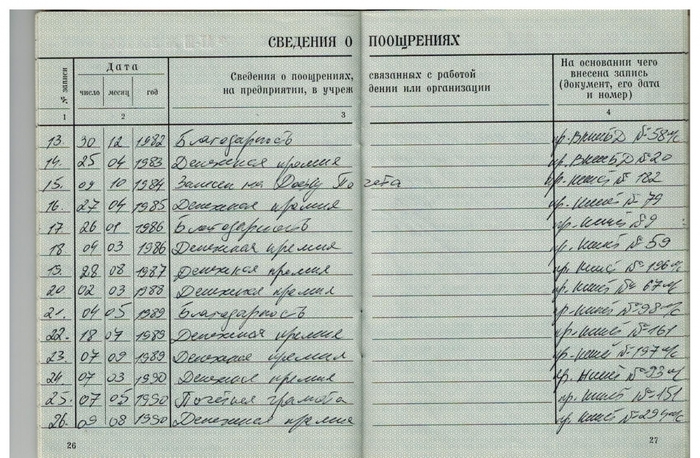 СВЕДЕНИЯ О ПООЩРЕНИЯХ
№ записи
Дата
число месяц год
Сведения о поощрениях, связанных с работой
на предприятии, в учреждении или организации
На основании чего
внесена запись
(документ, его дата
и номер)
1 2 3 4
13. 30 12 1982 Благодарность пр. № 58-к
14. 25 04 1983 Денежная премия пр. № 20
15. 09 10 1984 Занесен на Доску Почёта № 182
16. 27 04 1985 Денежная премия пр. № 79
17. 26 01 1986 Благодарность пр. № 9
18 04 03 1986 Денежная премия пр. № 59
19. 28 08 1987 Денежная премия пр. № 196-к
20. 02 03 1988 Денежная премия пр. № 67-к
21. 04 05 1989 Благодарность пр. № 98-к
22. 18 07 1989 Денежная премия пр. № 161
23. 07 09 1989 Денежная премия пр. № 197-к
24 07 03 1990 Денежная премия пр. № 93-к
25. 07 05 1990 Почётная грамота пр. № 151
26. 09 08 1990 Денежная премия пр. № 294-к
26 27